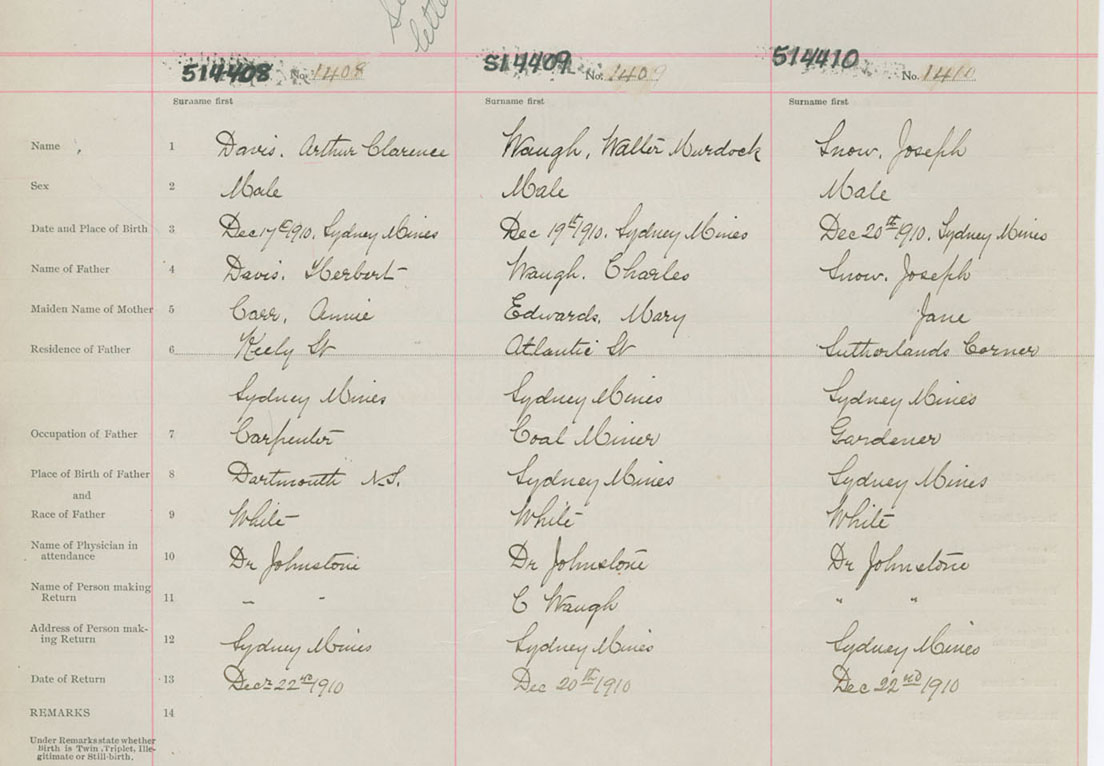 514408 No. 1408 514409 No. 1409 514410 No. 1410
Surname first Surname first Surname first
Name 1 Davis, Arthur Clarence Waugh, Walter Murdock Snow, Joseph
Sex 2 Male Male Male
Date and Place of Birth 3 Dec 17th 1910, Sydney Mines Dec 19th 1910, Sydney Mines Dec 20th 1910, Sydney Mines
Name of Father 4 Davis, Herbert Waugh, Charles Snow, Joseph
Maiden Name of Mother 5 Carr, Annie Edwards, Mary Jane
Residence of Father 6 Keely St Atlantic St Sutherlands Corner
Sydney Mines Sydney Mines Sydney Mines
Occupation of Father 7 Carpenter Coal Miner Gardener
Place of Birth of Father 8 Dartmouth N.S. Sydney Mines Sydney Mines
and
Race of Father 9 White White White
Name of Physician in
attendance 10 Dr Johnstone Dr Johnstone Dr Johnstone
Name of Person making
Return 11 " " C Waugh " "
Address of Person mak-
ing Return 12 Sydney Mines Sydney Mines Sydney Mines
Date of Return 13 Decr 22nd 1910 Dec 20th 1910 Dec 22nd 1910
REMARKS 14
Under Remarks state whether
Birth is Twin, Triplet, Ille-
gitimate or Still-birth.